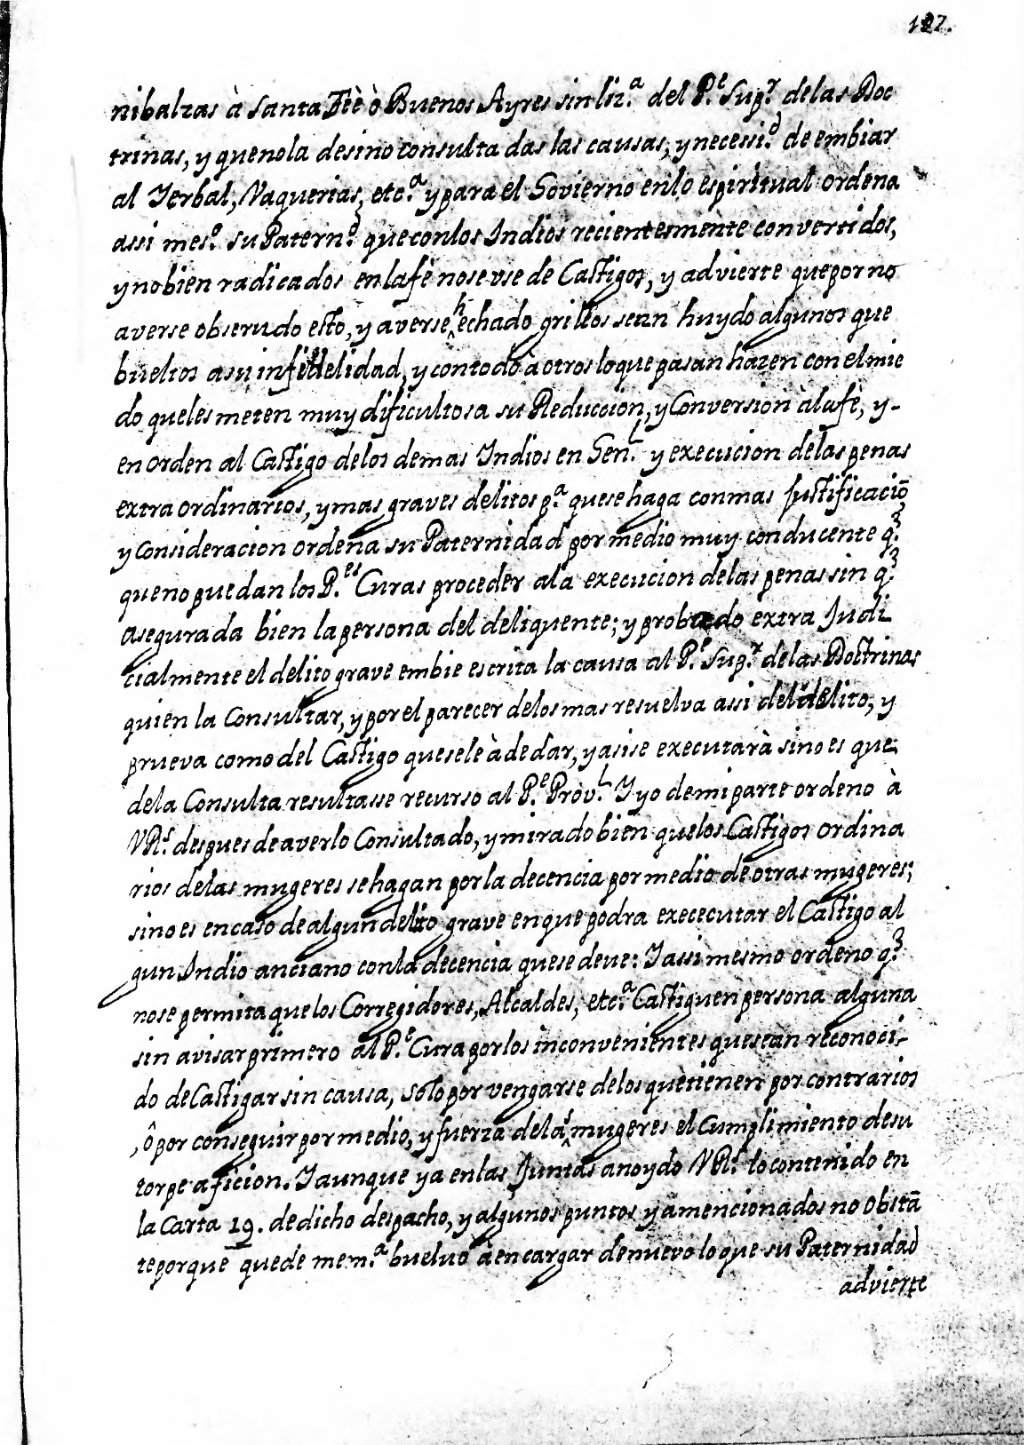 127.
nibalzas à Santa Feè ò Buenos Ayres sin liz.ª del P.e Sup.r de las Doc
trinas, y que no la de sino consultadas las causas, y necessi.d de embiar
al Yerbal, Vaquerias, etc.ª y para el Govierno en lo espiritual ordena
assi mes.o su Patern.d que con los Indios recientemente convertidos,
y no bien radicados en la fè no se use de Castigos, y advierte que por no
averse observado esto, y averse hechado grillos sean huydo algunos que
bueltos a su infidelidad, y contodo à otros lo que pasan hazen con el mie
do que les meten muy dificultosa su Reduccion, y Conversion à la fè, y-
en orden al Castigo de los demas Indios en Gen.l y execucion de las penas
extraordinarios, y mas graves delitos p.ª que se haga con mas justificaciõ
y consideracion ordena su Paternidad por medio muy conducente q.e
que no puedan los P.es Curas proceder a la execucion de las penas sin q.e
asegurada bien la persona del deliquente; y probado extra Judi
cialmente el delito grave embie escrita la causa al P.e Sup.r de las Doctrinas
quien la Consultar, y por el parecer de los mas resuelva assi del delito, y
prueva como del Castigo que se le à de dar, y asi se executarà sino es que
de la Consulta resultasse recurso al P.e Prov.l Y yo de mi parte ordeno à
VR.s despues de averlo Consultado, y mirado bien que los Castigos ordina
rios de las mugeres se hagan por la decencia por medio de otras mugeres;
sino es en caso de algun delito grave en que podra exececutar el Castigo al
gun Indio anciano con la decencia que se deve: Y assi mesmo ordeno q.e
no se permita que los Corregidores, Alcaldes, etc.ª Castiguen persona alguna
sin avisar primero al P.e Cura por los inconvenientes que sean reconoci-
do de Castigar sin causa, solo por vengarse de los que tienen por contrarios
, ô por conseguir por medio, y fuerza de las mugeres el Cumplimiento de su
torpe aficion. Y aunque ya en las Juntas an oydo VR.s lo contenido en
la Carta 19. de dicho despacho, y algunos puntos ya mencionados no obstã
te porque quede mem.ª buelvo à encargar de nuevo lo que su Paternidad
advierte